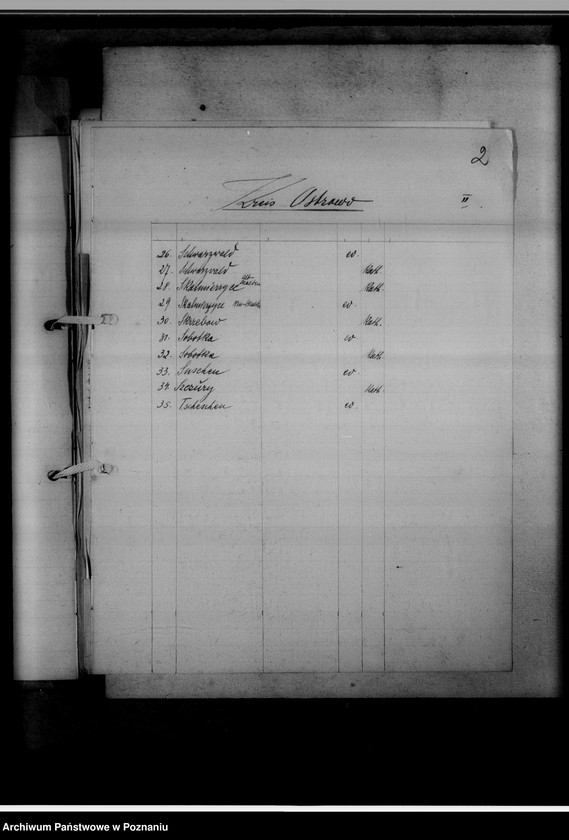 2
Kreis Ostrowo II.
26. Schwarzwald ev.
27. Schwarzwald Kath.
28. Skalmierzyce Kath.
29. Skalmierzyce ev.
30. Skrzebow Kath.
31. Sobotka ev
32. Sobotka Kath.
33. Suschen ev.
34. Szczury Kath.
35. Tscheschen ev.
Archiwum Państwowe w Poznaniu